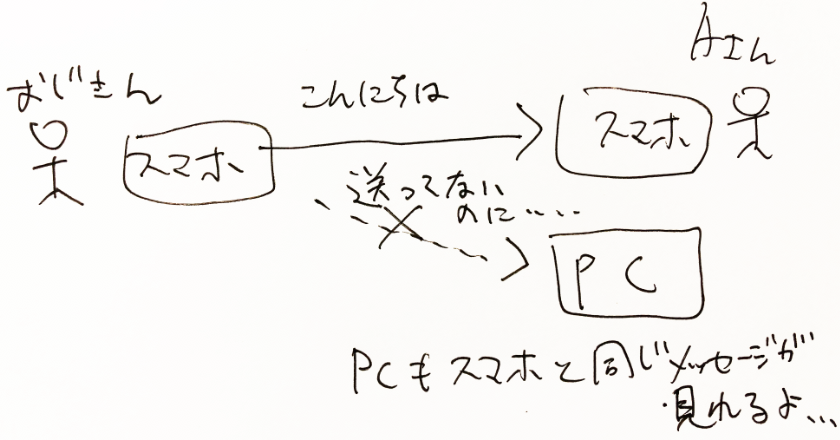 おじさん
スマホ
こんにちは
Aさん
スマホ
送ってない
のに....
PC
PCもスマホと同じメッセージが
見れるよ...